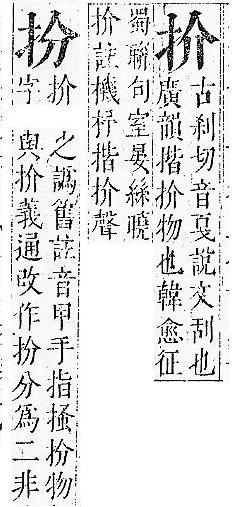 扴
古刹切音戛說文刮也
廣韻揩扴物也韓愈征
蜀聯句室晏絲曉
扴註機杼揩扴聲
扮
扴
字
之譌舊註音甲手指搔扮物
與扴義通改作扮分爲二非